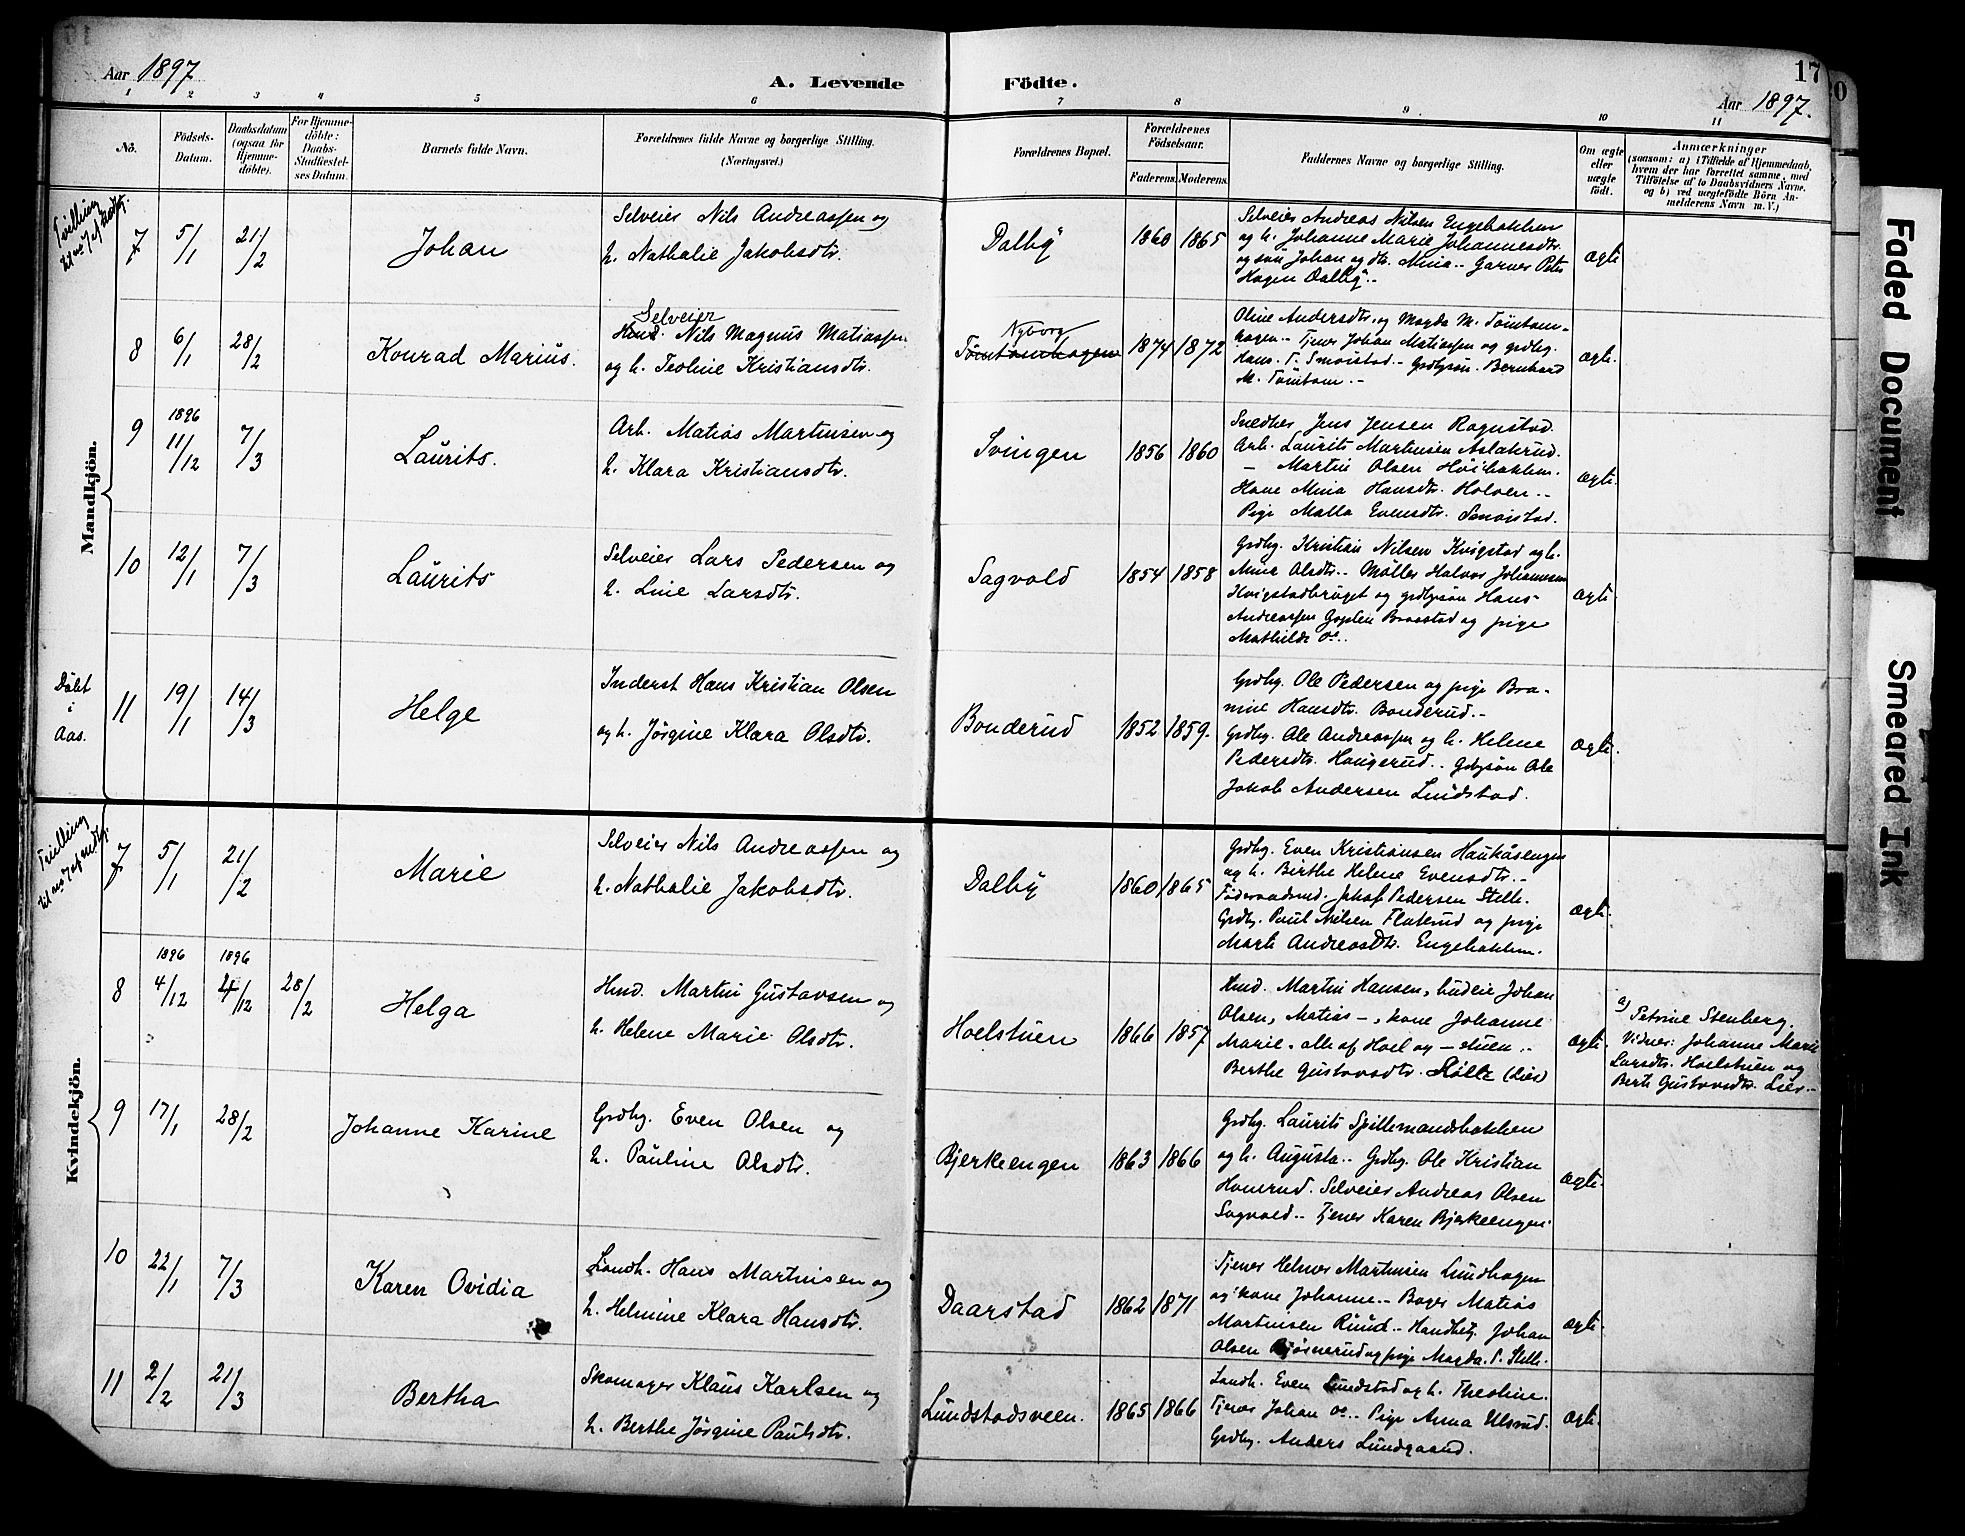 Aar 1897
A. Levende Födte.
17
Aar 1897.
1 2 3 4 5 6 7 8 9 10 11
No.
Födsels-
Datum.
Daabsdatum
(ogsaa for
Hjemme-
döbte).
For Hjemme-
döbte:
Daabs-
Stadfæstel-
ses Datum.
Barnets fulde Navn.
Forældrenes fulde Navne og borgerlige Stilling.
(Næringsvei.)
Forældrenes Bopæl.
Forældrenes
Födselsaar.
Faderens.
Moderens.
Faddernes Navne og borgerlige Stilling.
Om ægte
eller
uægte
födt.
Anmærkninger
(saasom: a) i Tilfælde af Hjemmedaab,
hvem der har forrettet samme, med
Tilföielse af to Daabsvidners Navne.
og b) ved uægtefödte Börn An-
melderens Navn m. V.)
Mandkjön.
Tvilling
til no 7 af Kvdkj.
7
5/1
21/2
Johan
Selveier Nils Andreassen og
h. Nathalie Jakobsdtr.
Dalby
1860
1865
Selveier Andreas Nilsen Engebakken
og h. Johanne Marie Johannesdtr.
og søn Johan og dtr. Mina -. Garver Peter
Hagen Dalby -.
ægte
8
6/1
28/2
Konrad Marius.
Selveier
Hmd. Nils Magnus Matiassen
og h. Teoline Kristiansdtr.
Nyborg
Tömtomhagen
1874
1872
Oline Andersdtr. og Magda M. Tömtom-
hagen -. Tjener Johan Matiassen og grdbg.
Hans. T. Smöistad -. Grdbgsøn. Bernhard
M. Tömtom. -
ægte.
9
1896
11/12
7/3
Laurits.
Arb. Matias Martinsen og
h. Klara Kristiansdtr.
Svingen
1856
1860
Snedker Jens Jensen Rognstad.
Arb. Laurits Martinsen Aslakrud.
- Martin Olsen Höibakken.
Kone Mina Hansdtr. Holven -.
Pige Malla Evensdtr. Smöistad.
ægte.
10
12/1
7/3
Laurits
Selveier Lars Pedersen og
h. Line Larsdtr.
Sagvold
1854
1858
Grdbg. Kristian Nilsen Kvigstad og h.
Mina Olsdtr -. Møller Halvor Johannesen
Kvigstadbruget og grdbgsøn Hans
Andreassen Gjøplen Braastad og pige
Mathilde do -.
ægte.
Döbt
i
Aas.
11
19/1
14/3
Helge
Inderst Hans Kristian Olsen
og h. Jørgine Klara Olsdtr.
Bonderud
1852
1859.
Grdbg. Ole Pedersen og pige Bra-
mine Hansdtr. Bonderud -.
Grdbg. Ole Andreassen og h. Helene
Pedersdtr. Haugerud -. Gdbgsøn Ole
Jakob Andersen Lundstad.
ægte.
Kvindekjön.
Tvilling
til no 7 af mdkj.
7
5/1
21/2
Marie
Selveier Nils Andreassen og
h. Nathalie Jakobsdtr.
Dalby
1860
1865
Grdbg. Even Kristiansen Haukåsengen
og h. Birthe Helene Evensdtr. -
Föderaadsmd. Jakof Pedersen Stelle.
Grdbg. Paul Nilsen Flaterud og pige
Marte Andreasdtr. Engebakken.
ægte.
8
1896
4/12
1896
4/12
28/2
Helga
Hmd. Martin Gustavsen og
h. Helene Marie Olsdtr.
Hoelstuen
1866
1857
Hmd. Martin Hansen, budeie Johan
Olsen, Matias -, kone Johanne
Marie. alle af Hoel og - stuen -.
Berthe Gustavsdtr. (Lier)
ægte.
a) Petrine Stenberg.
Vidner: Johanne Marie
Larsdtr. Hoelstuen og
Berte Gustavsdtr. Lier -.
9
17/1
28/2
Johanne Karine
Grdbg. Even Olsen og
h. Pauline Olsdtr.
Bjerkeengen
1863
1866
Grdbg. Laurits Spillemandsbakken
og h. Augusta -. Grdbg. Ole Kristian
Honerud. Selveier Andreas Olsen
Sagvold -. Tjener Karen Bjerkeengen.
ægte.
10
22/1
7/3
Karen Ovidia
Landh. Hans Martinsen og
h. Helmine Klara Hansdtr.
Daarstad
1862
1871
Tjener Helmer Martinsen Lundhagen
og kone Johanne -. Bager Matias
Martinsen Ruud -. Handbetj. Johan
Olsen Bjösnerud og pige Magda. P. Stelle.
ægte.
11
2/2
21/3
Bertha
Skomager Klaus Karlsen og
h. Berthe Jørgine Paulsdtr.
Lundstadsveen.
1865
1866
Landh. Even Lundstad og h. Theoline.
Tjener Johan do -. Pige Anna Ulsrud.
Grdbg. Anders Lundgaard.
ægte.
Faded Document
Smeared Ink